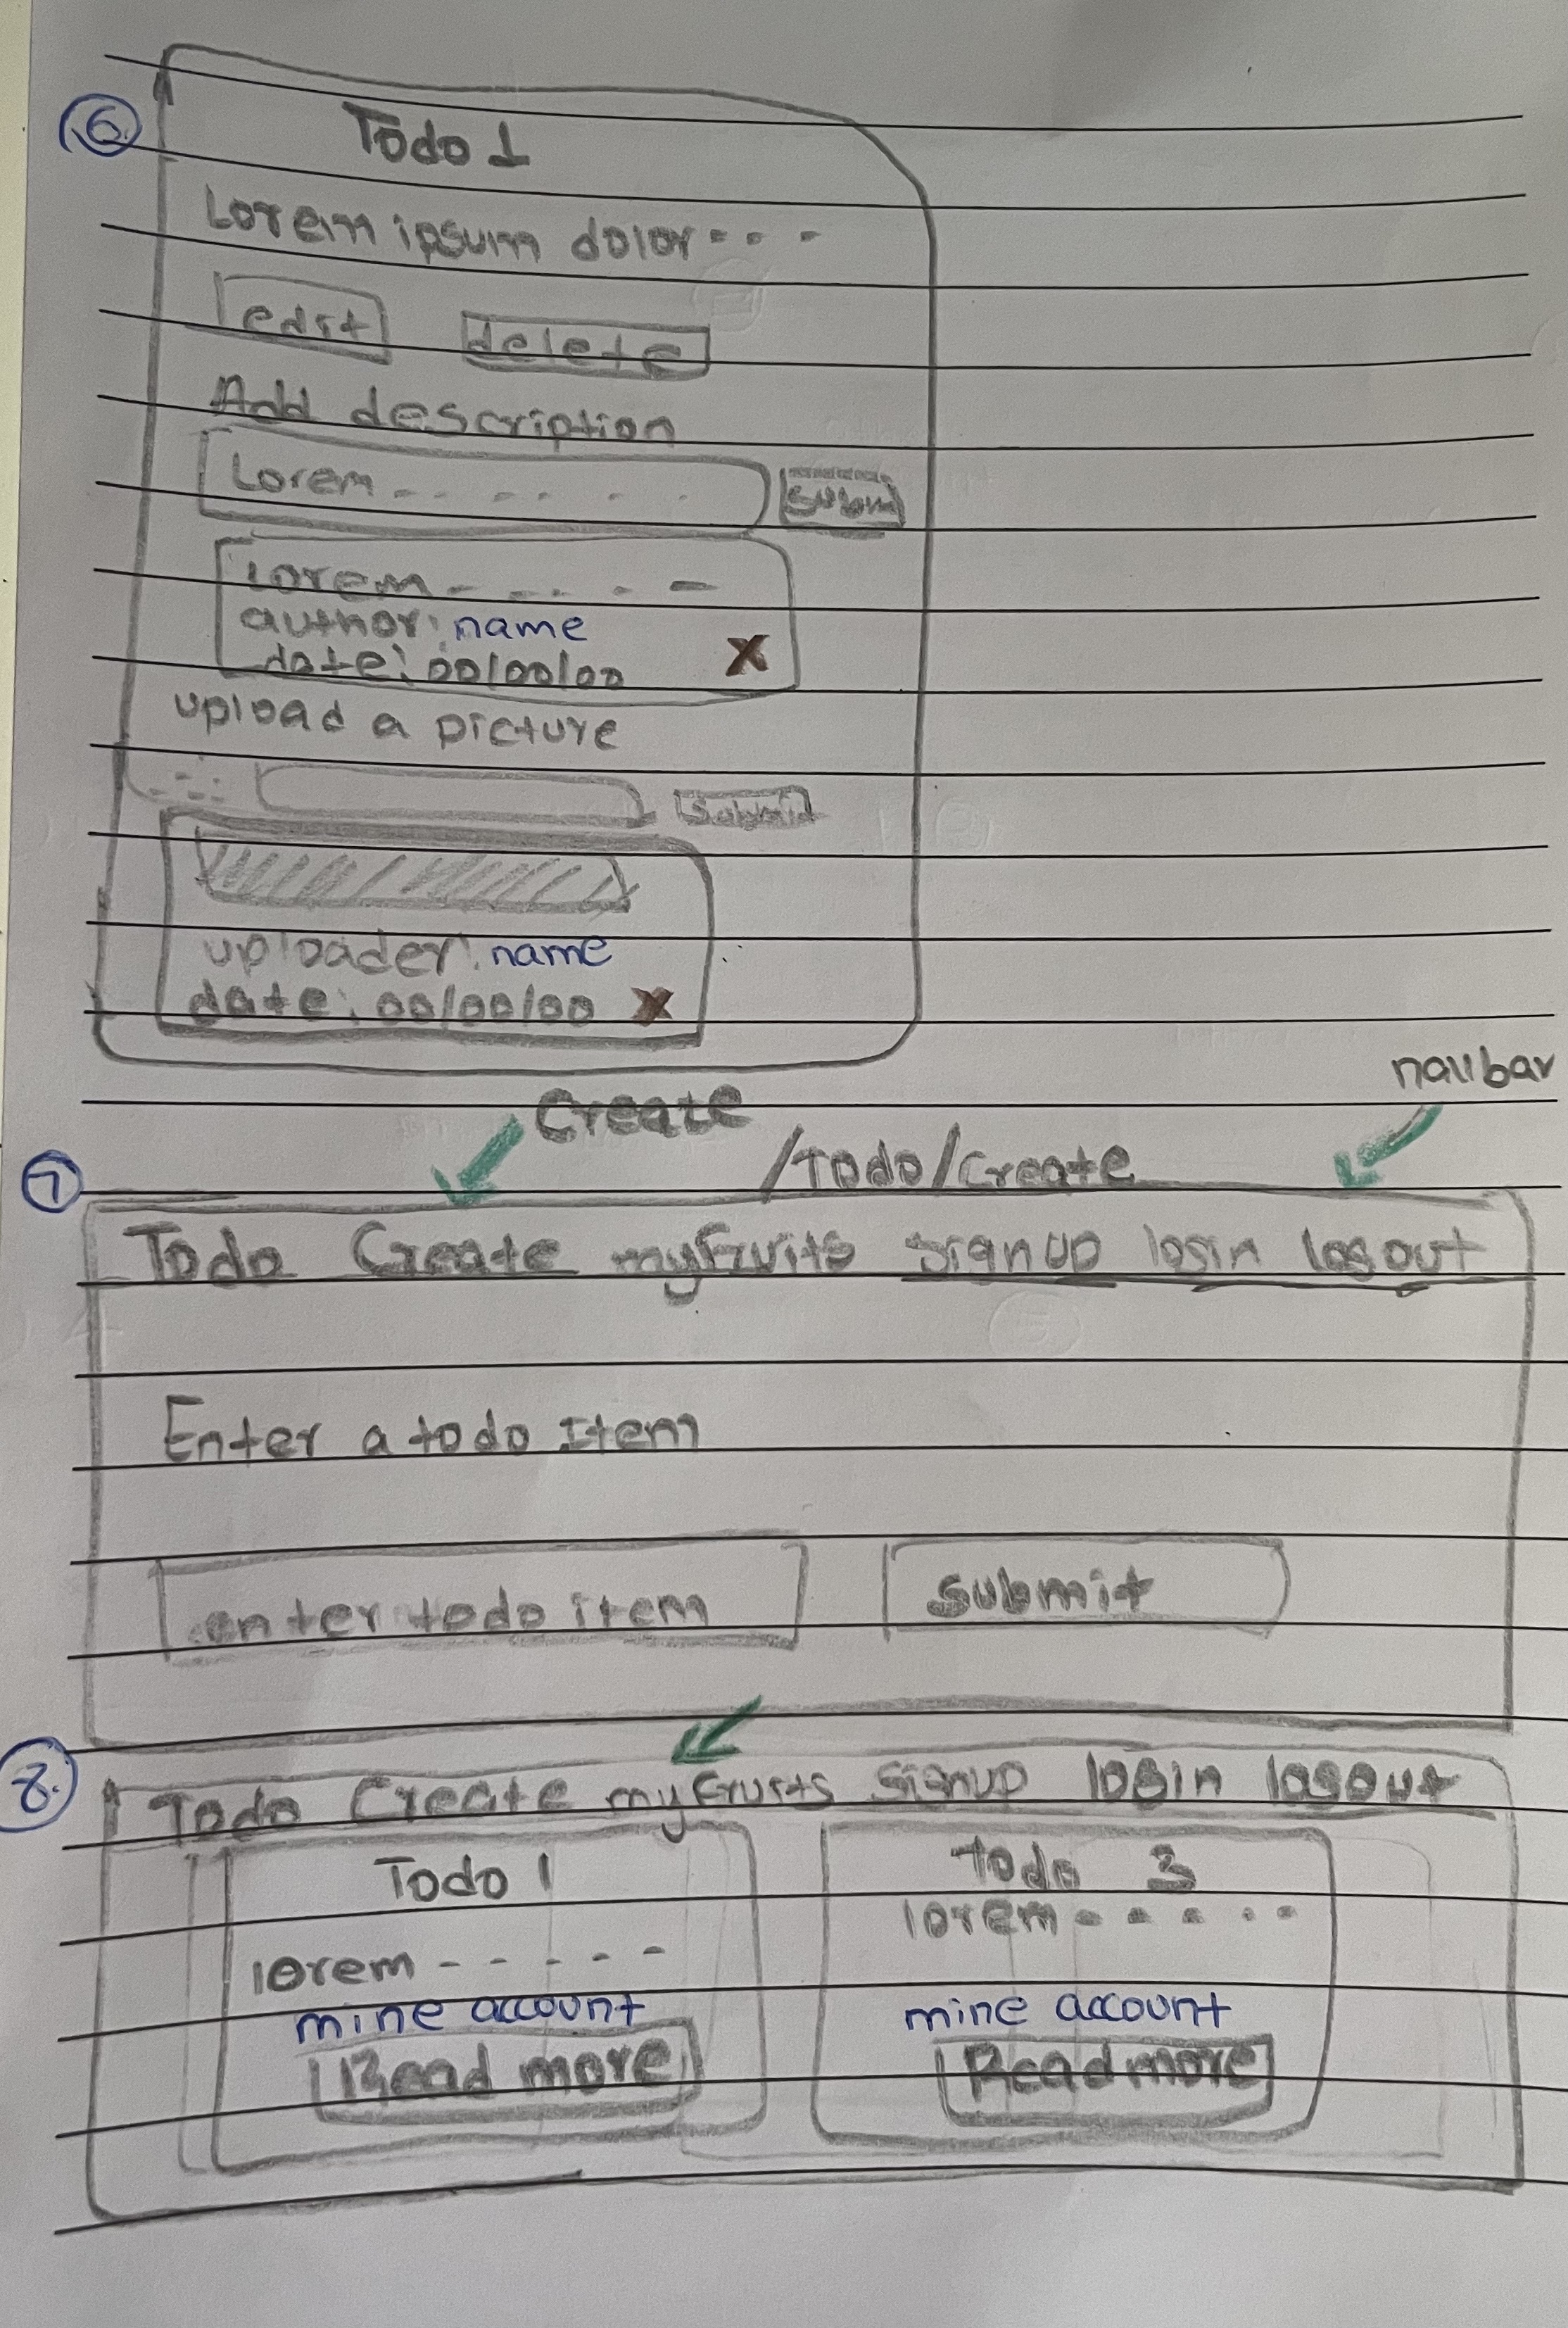 6.
Todo 1
Lorem ipsum dolor - - -
edit delete
Add description
Lorem - - - - - - Subm
Lorem - - - - - -
author: name
date: 00/00/00 X
upload a picture
Submit
uploader: name
date: 00/00/00 X
navbar
Create
/Todo/Create
7
Todo Create myfruits signup login logout
Enter a todo Item
enter todo item submit
8.
Todo Create myfruits signup login logout
Todo 1
lorem - - - - -
mine account
Read more
todo 3
lorem - - - - -
mine account
Read more